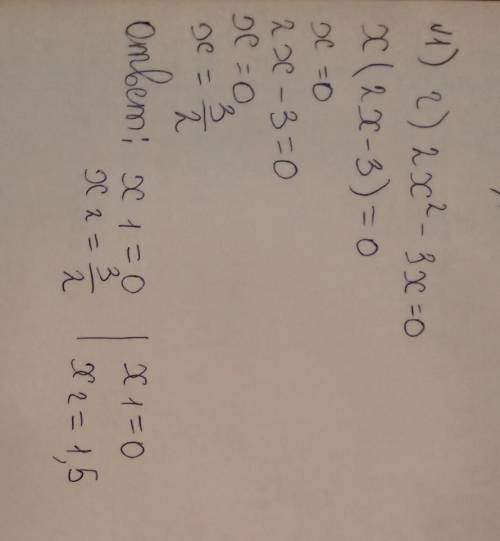 √1) 2) 2x² - 3x = 0
x(2x - 3) = 0
x = 0
2x - 3 = 0
x = 0
x = 3/2
Ответ: x1 = 0 | x1 = 0
x2 = 3/2 | x2 = 1,5